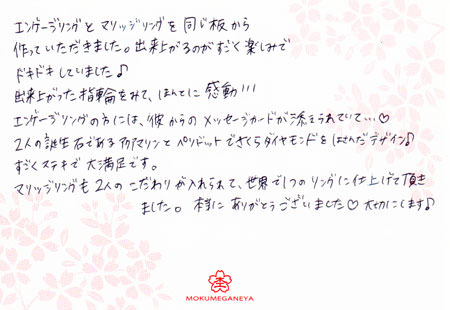 エンゲージリングとマリッジリングを同じ板から
作っていただきました。出来上がるのがすごく楽しみで
ドキドキしていました♪
出来上がった指輪をみて、ほんとに感動!!!
エンゲージリングの方には、彼からのメッセージカードが添えられていて…♡
2人の誕生石であるアクアマリンとペリドットでさくらダイヤモンドをはさんだデザイン♪
すごくステキで大満足です。
マリッジリングも2人のこだわりが入れられて、世界で1つのリングに仕上げて頂き
ました。本当にありがとうございました♡大切にします♪
MOKUMEGANEYA